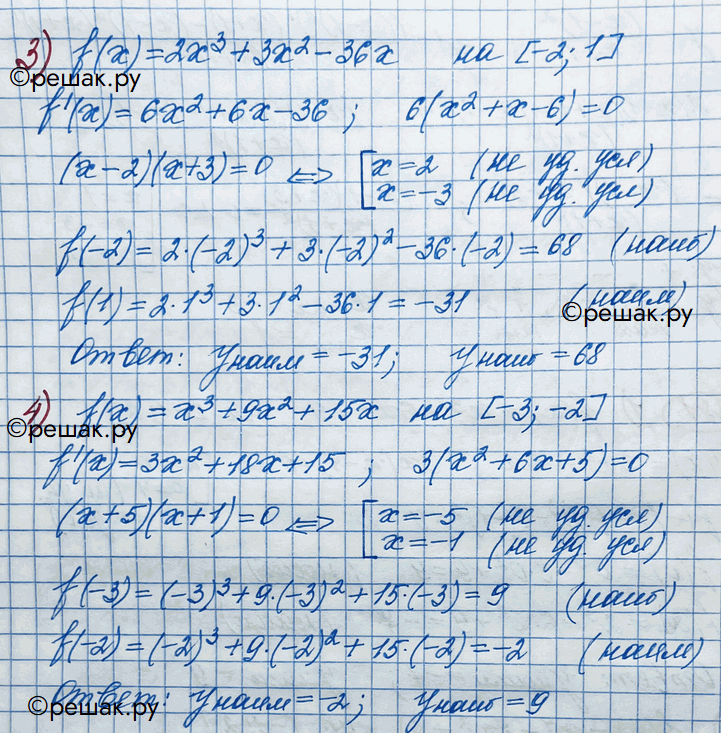 3) f(x) = 2x³ + 3x² - 36x на [-2; 1]
©решак.ру
f'(x) = 6x² + 6x - 36 ; 6(x² + x - 6) = 0
(x - 2)(x + 3) = 0 <=> [ x = 2 (не уд. усл)
x = -3 (не уд. усл)
f(-2) = 2·(-2)³ + 3·(-2)² - 36·(-2) = 68 (наиб)
f(1) = 2·1³ + 3·1² - 36·1 = -31 (наим)
©решак.ру
Ответ: yнаим = -31; yнаиб = 68
4) f(x) = x³ + 9x² + 15x на [-3; -2]
©решак.ру
f'(x) = 3x² + 18x + 15 ; 3(x² + 6x + 5) = 0
(x + 5)(x + 1) = 0 <=> [ x = -5 (не уд. усл)
x = -1 (не уд. усл)
f(-3) = (-3)³ + 9·(-3)² + 15·(-3) = 9 (наиб)
f(-2) = (-2)³ + 9·(-2)² + 15·(-2) = -2 (наим)
Ответ: yнаим = -2; yнаиб = 9
©решак.ру